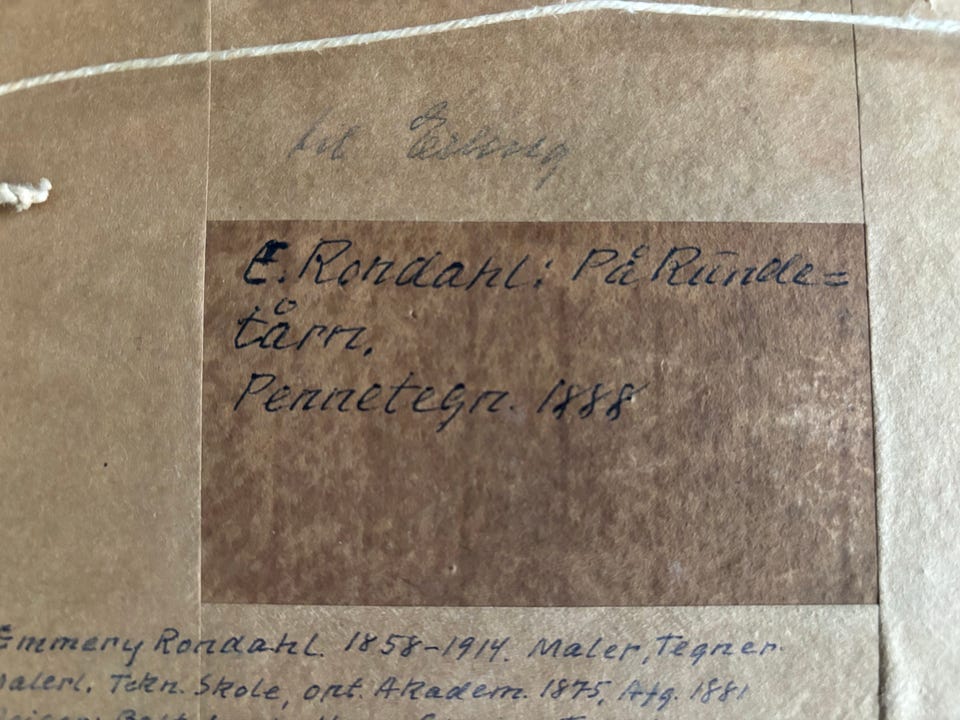 til Erling
E. Rondahl: På Runde=
tårn.
Pennetegn. 1888
Emmery Rondahl. 1858-1914. Maler, Tegner.
Tekn. Skole, opt. Akadem. 1875, Afg. 1881